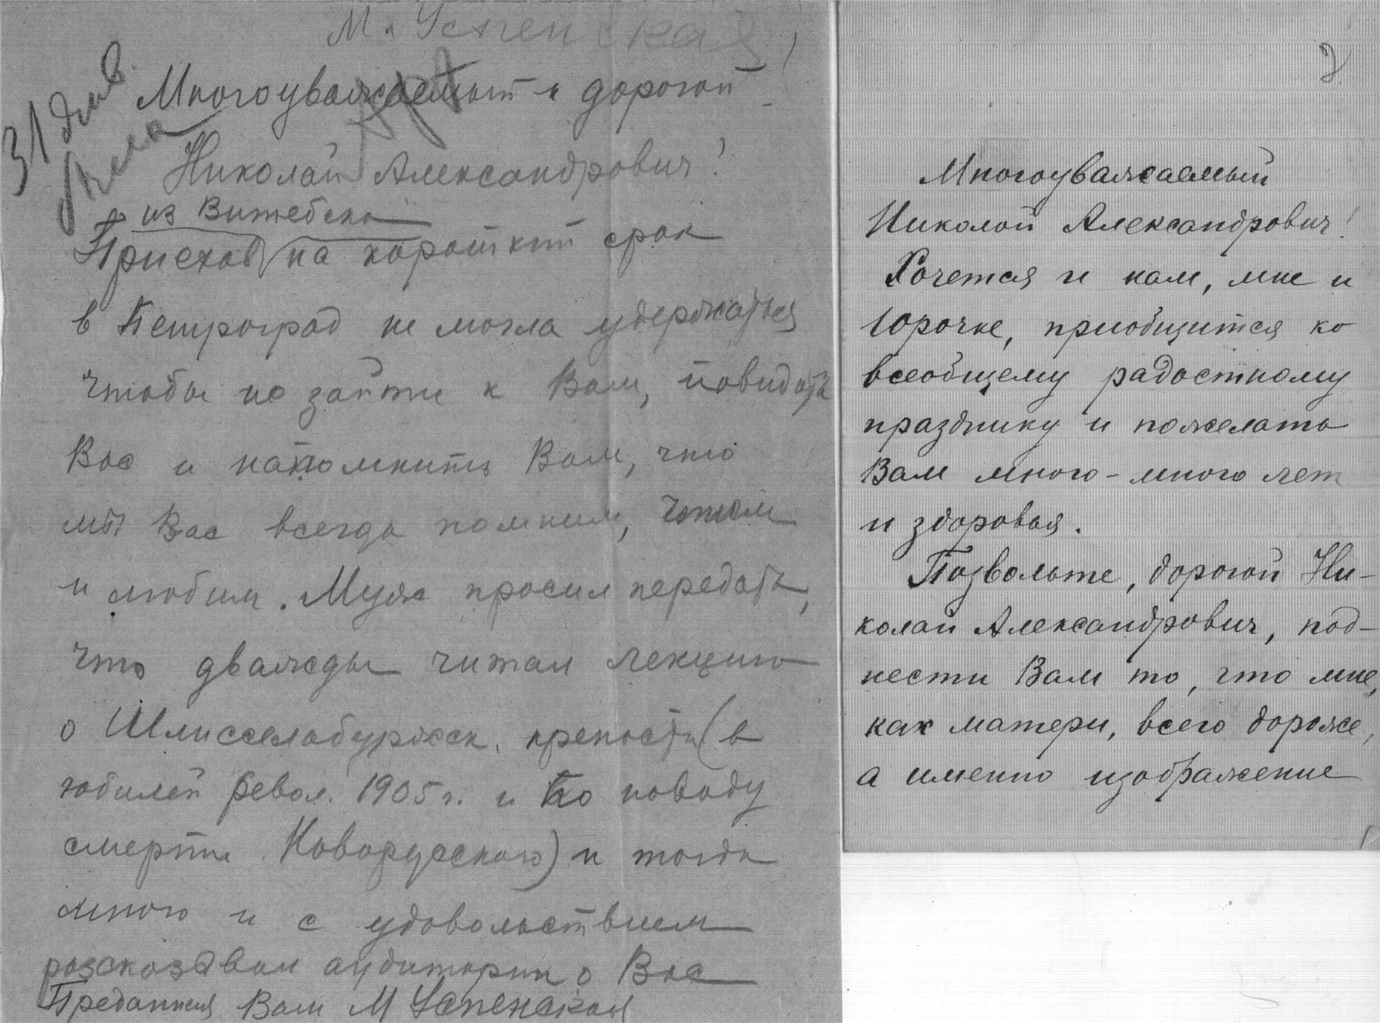 М. Успенская
31 дек.
Многоуважаемый и дорогой
Николай Александрович!
из Витебска
Приехав на короткий срок
в Петроград не могла удержаться
чтобы не зайти к Вам, повидать
Вас и напомнить Вам, что
мы Вас всегда помним, чтим
и любим. Муж просил передать,
что дважды читал лекцию
о Шлиссельбургск. крепости (в
юбилей револ. 1905 г. и по поводу
смерти Новорусского) и тогда
много и с удовольствием
рассказывал аудитории о Вас
Преданная Вам М Успенская
2
Многоуважаемый
Николай Александрович!
Хочется и нам, мне и
Юрочке, приобщится ко
всеобщему радостному
празднику и пожелать
Вам много-много лет
и здоровья.
Позвольте, дорогой Ни-
колай Александрович, под-
нести Вам то, что мне,
как матери, всего дороже,
а именно изображение